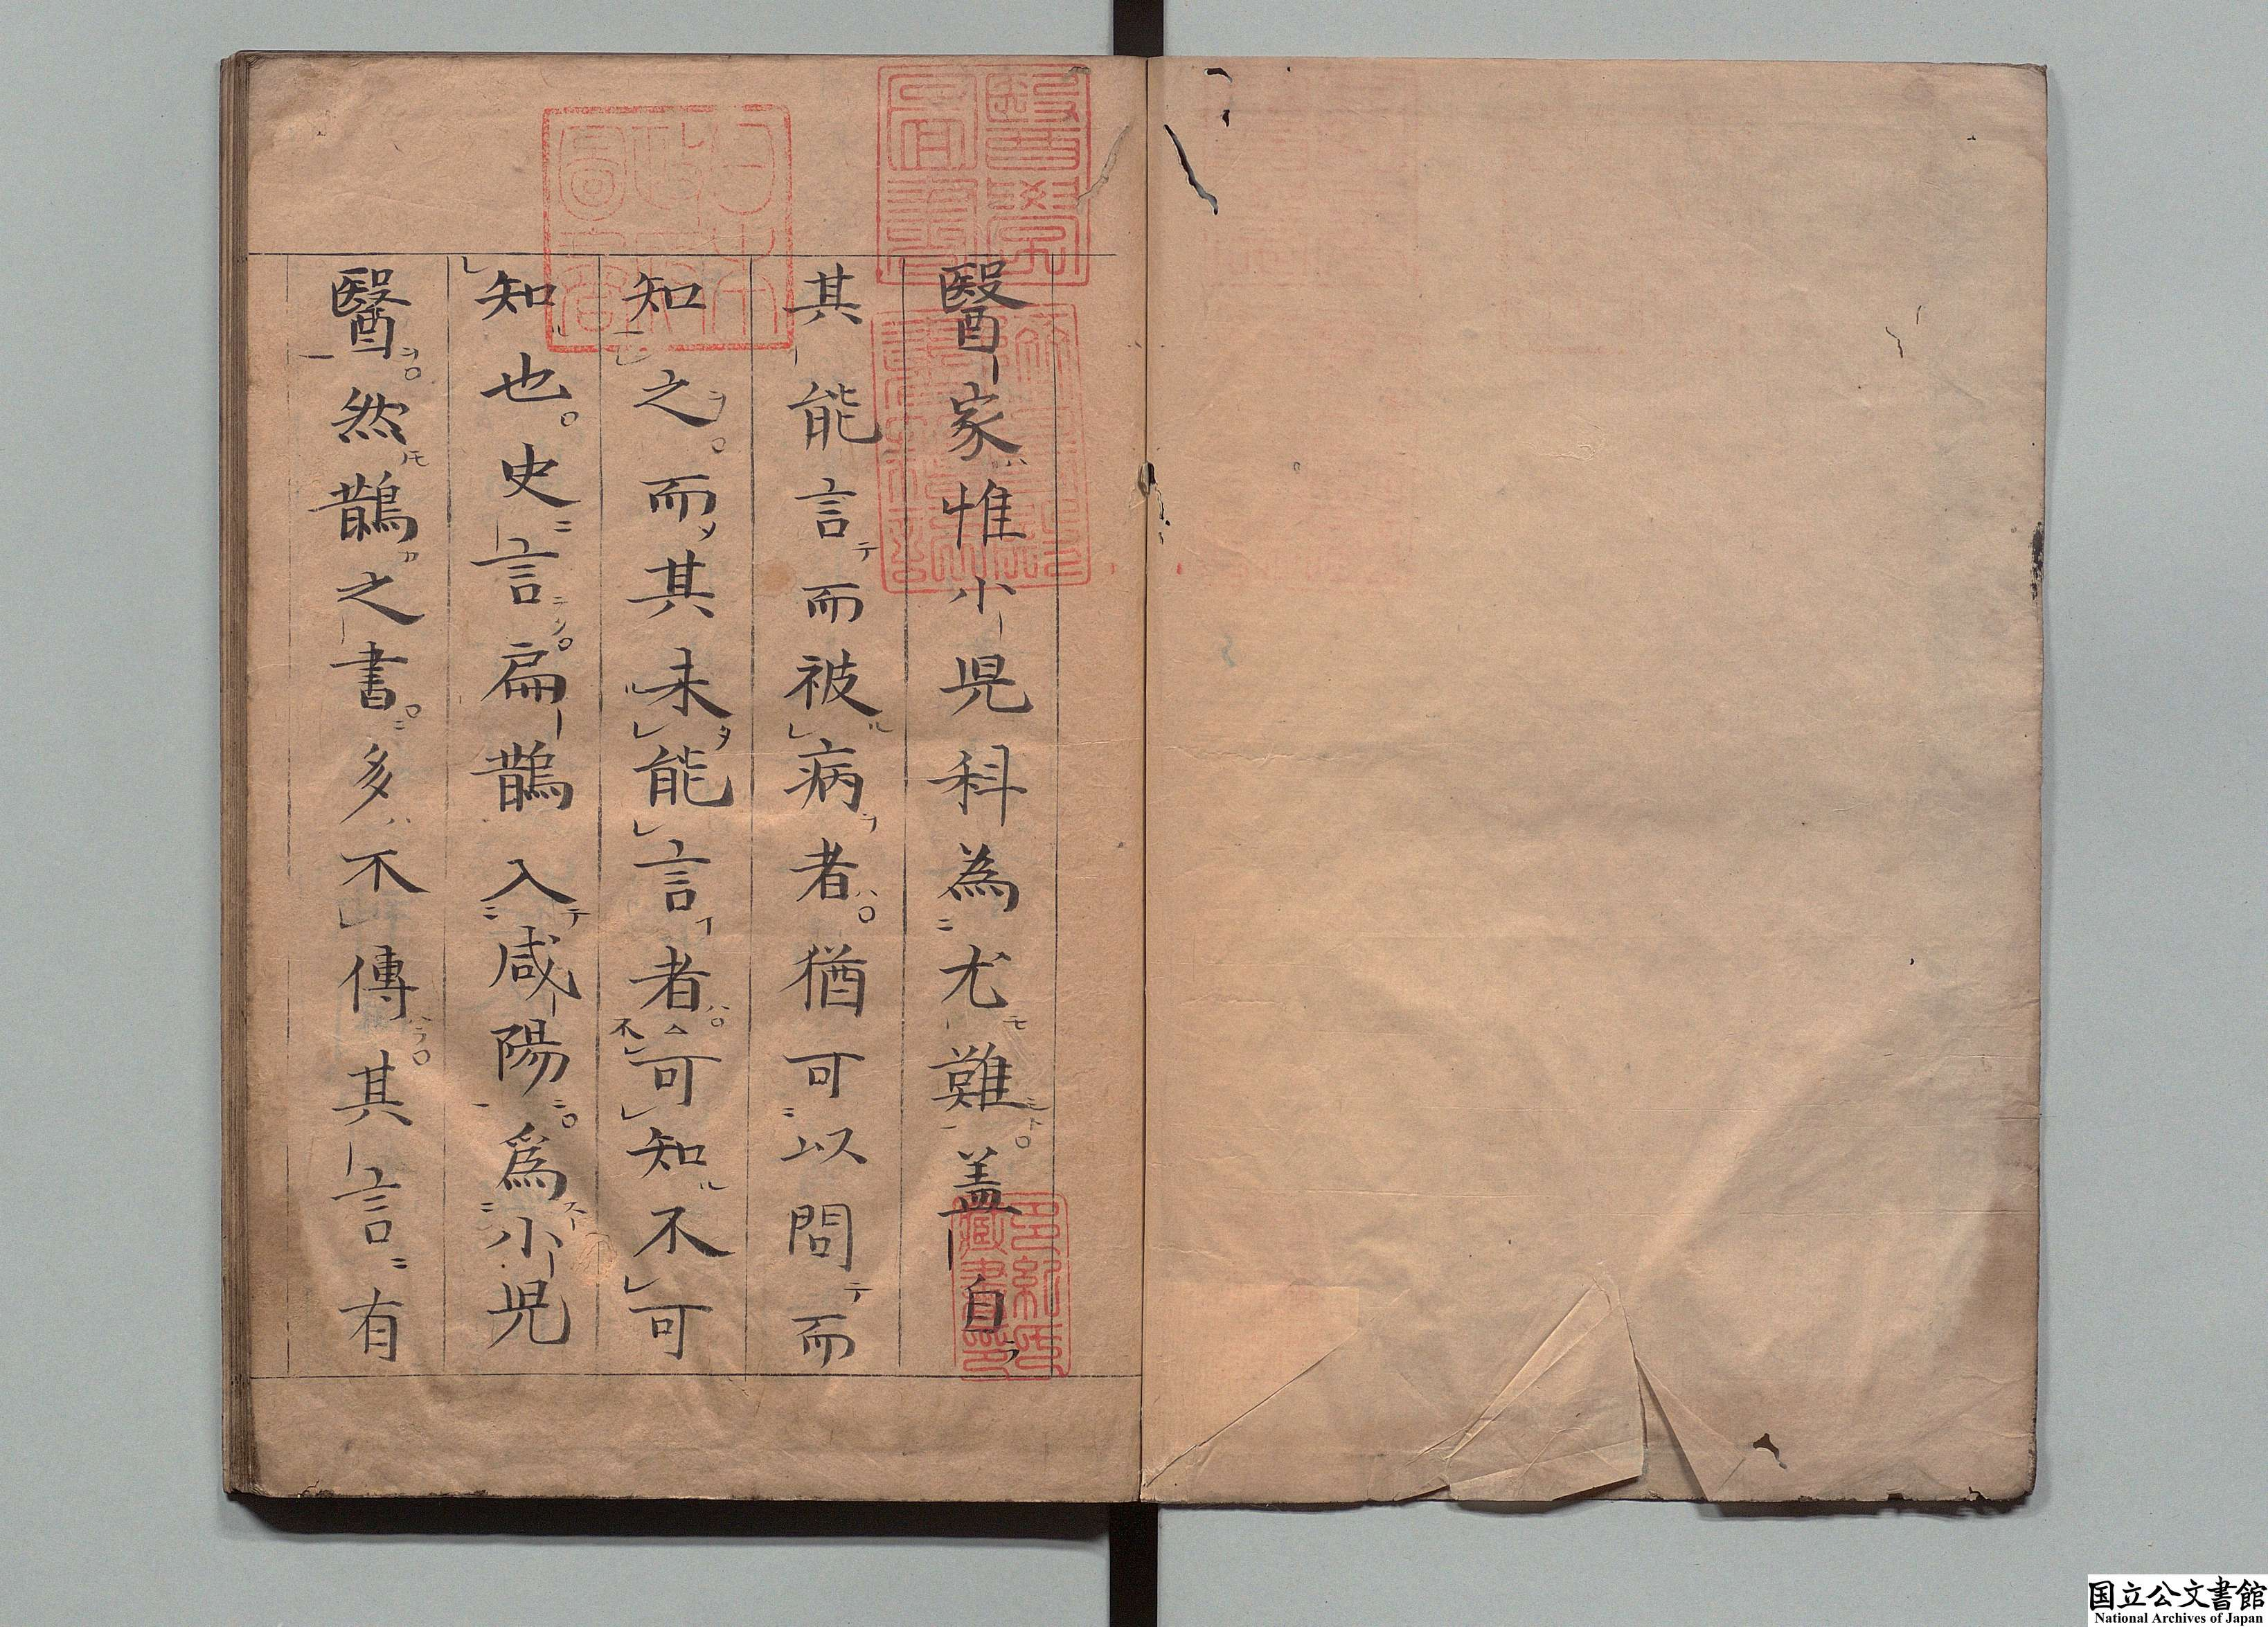 醫家惟小兒科為尤難盖自
其能言而被病者猶可以問而
知之而其未能言者不可知不可
知也史言扁鵲入咸陽爲小兒
醫然鵲之書多不傳其言有
醫學圖書
日本政府圖書
多紀氏藏書印
国立公文書館
National Archives of Japan